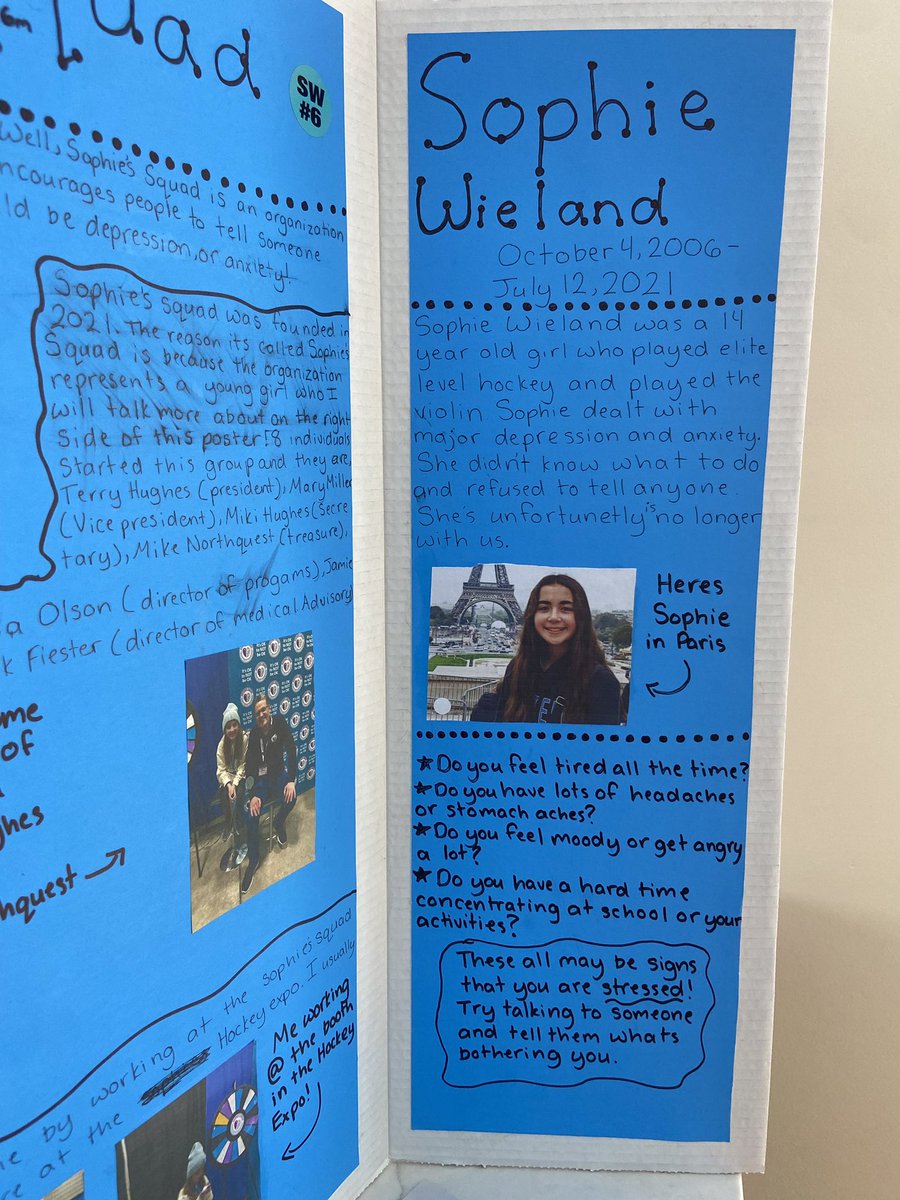 quad
SW
#6
Well, Sophie's Squad is an organization
ncourages people to tell someone
ld be depression, or anxiety!
Sophie's squad was founded in
2021. The reason its called Sophie's
Squad is because the organization
represents a young girl who I
will talk more about on the right
side of this poster! 8 individuals
started this group and they are,
Terry Hughes (president), Mary Miller
(Vice president), Miki Hughes (Secre
tary), Mike Northquest (treasure),
a Olson (director of progams), Jamie
k Fiester (director of medical Advisory
me
of
ghes
hquest
e by working at the sophie's squad
re at the Hockey expo. I usually
Me working
@ the booth
in the Hockey
Expo!
Sophie
Wieland
October 4, 2006-
July 12, 2021
Sophie Wieland was a 14
year old girl who played elite
level hockey and played the
violin. Sophie dealt with
major depression and anxiety.
She didn't know what to do
and refused to tell anyone.
She's unfortunetly is no longer
with us.
Heres
Sophie
in Paris
★Do you feel tired all the time?
★Do you have lots of headaches
or stomach aches?
★Do you feel moody or get angry
a lot?
★Do you have a hard time
concentrating at school or your
activities?
These all may be signs
that you are stressed!
Try talking to someone
and tell them whats
bothering you.